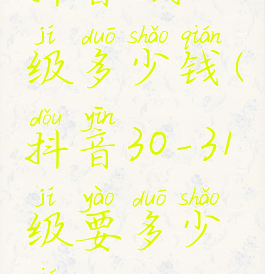 jí duō shǎo qián
级多少钱(
dǒu yīn
抖音30-31
jí yào duō shǎo
级要多少